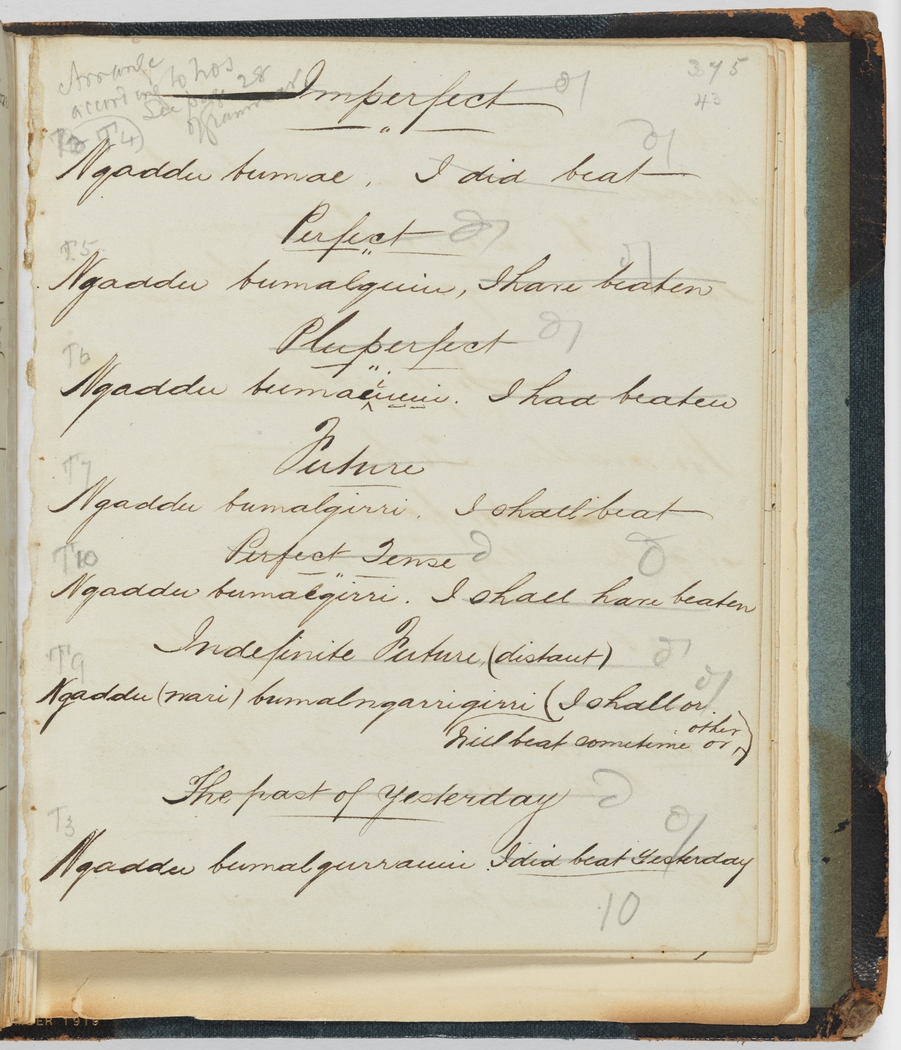 Arrange
according to nos
See page 28
of grammar
375
43
Imperfect
T2 T4)
Ngaddu bumae. I did beat
Perfect
T5
Ngaddu bumalguin, I have beaten
Pluperfect
T6
Ngaddu
I had beaten
Future
T7
Ngaddu bumalgirri. I shall beat
Perfect Tense
T10
Ngaddu bumalgirri. I shall have beaten
Indefinite Future (distant)
T9
Ngaddu (nari) bumalngarrigirri (I shall or
will beat sometime or other)
The past of Yesterday
T3
Ngaddu bumalgurrauin I did beat Yesterday
10